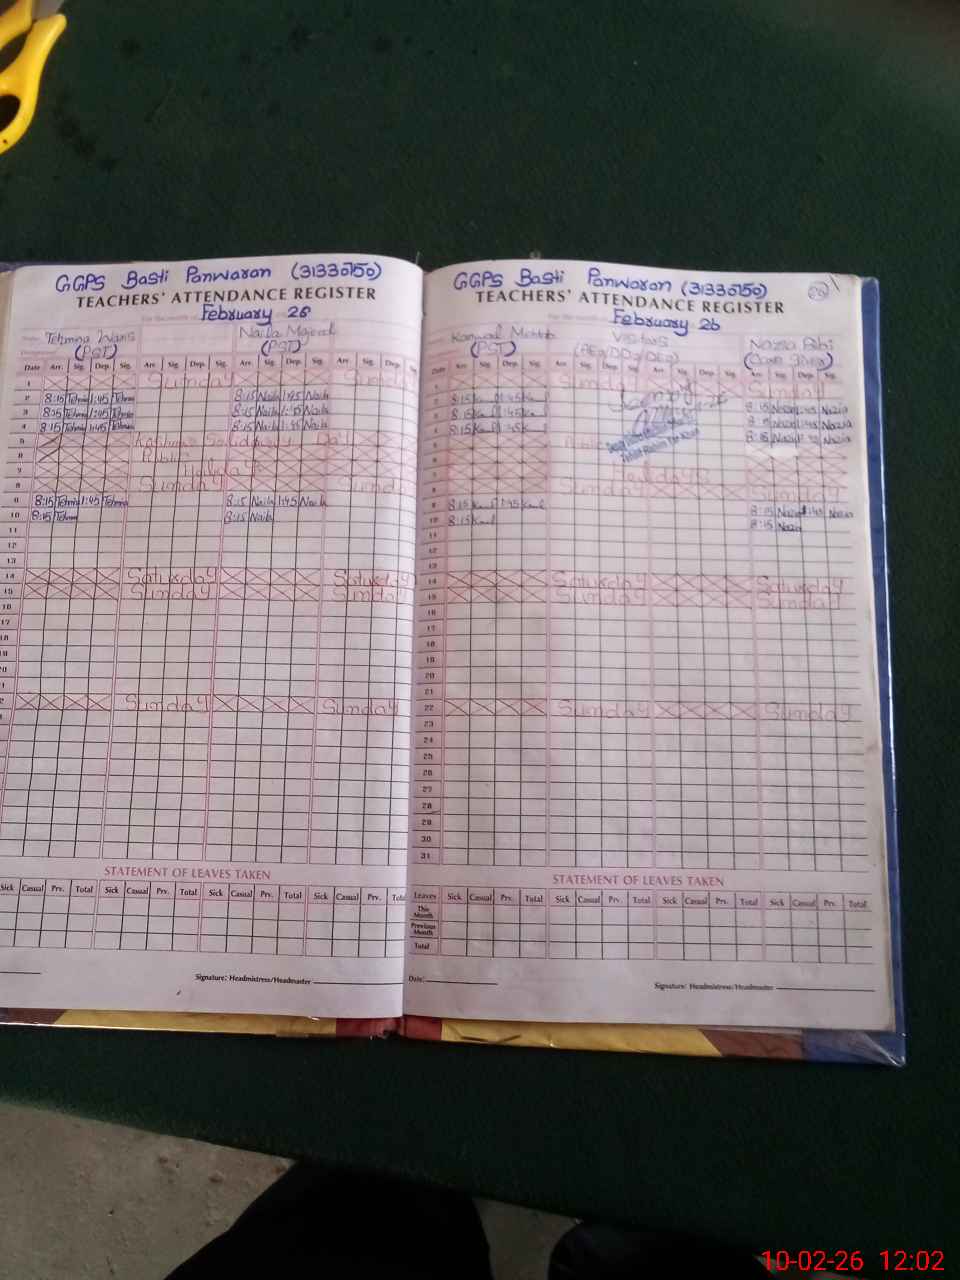 GGPS Basti Panwaran (31330150)
TEACHERS' ATTENDANCE REGISTER
February 26
Tehmina Waris Naila Majeed
(PST) (PST)
Date Arr. Sig. Dep. Sig. Arr. Sig. Dep. Sig. Arr. Sig. Dep. Sig. Arr. Sig. Dep. Sig.
1 Sunday Sunday
2 8:15 Tehmina 1:45 Tehmina 8:15 Naila 1:45 Naila
3 8:15 Tehmina 1:45 Tehmina 8:15 Naila 1:45 Naila
4 8:15 Tehmina 1:45 Tehmina 8:15 Naila 1:45 Naila
5 Kashmir Solidarity Day
6 Public
7 Holiday
8 Sunday Sunday
9 8:15 Tehmina 1:45 Tehmina 8:15 Naila 1:45 Naila
10 8:15 Tehmina 8:15 Naila
11
12
13
14 Saturday Saturday
15 Sunday Sunday
16
17
18
19
20
21
22 Sunday Sunday
STATEMENT OF LEAVES TAKEN
Sick Casual Prv. Total Sick Casual Prv. Total Sick Casual Prv. Total Sick Casual Prv. Total
Signature: Headmistress/Headmaster
GGPS Basti Panwaran (31330150)
TEACHERS' ATTENDANCE REGISTER
February 26
Kanwal Visitors Nazia Bibi
(PST) (Care Giver)
Date Arr. Sig. Dep. Sig. Arr. Sig. Dep. Sig. Arr. Sig. Dep. Sig. Arr. Sig. Dep. Sig.
1 Sunday Sunday
2 8:15 1:45 8:15 Nazia 1:45 Nazia
3 8:15 1:45 8:15 Nazia 1:45 Nazia
4 8:15 1:45 8:15 Nazia 1:45 Nazia
5 Public
6
7 Holiday
8 Sunday Sunday
9 8:15 1:45 8:15 Nazia 1:45 Nazia
10 8:15 8:15 Nazia
11
12
13
14 Saturday Saturday
15 Sunday Sunday
16
17
18
19
20
21
22 Sunday Sunday
23
24
25
26
27
28
29
30
31
STATEMENT OF LEAVES TAKEN
Leaves Sick Casual Prv. Total Sick Casual Prv. Total Sick Casual Prv. Total Sick Casual Prv. Total
This Month
Previous Month
Total
Date: Signature: Headmistress/Headmaster
10-02-26 12:02